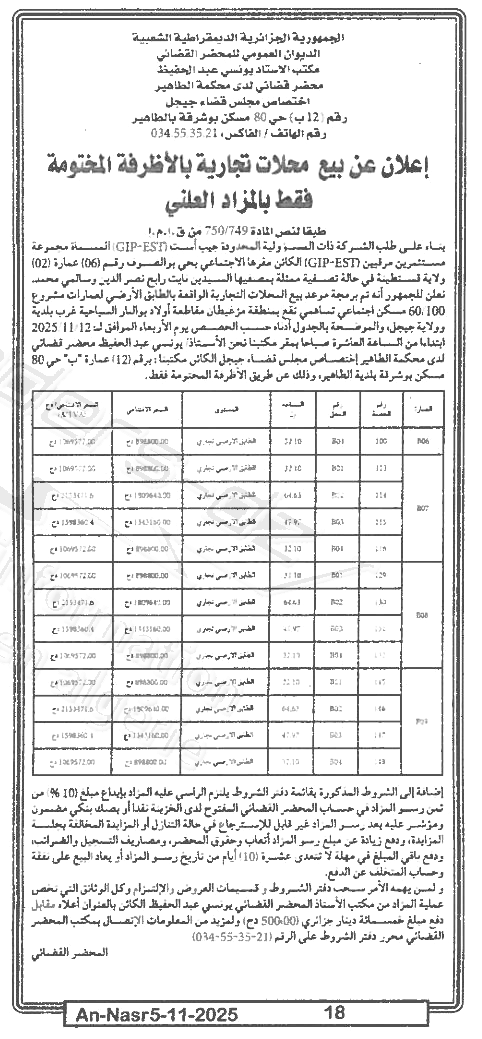 الجمهورية الجزائرية الديمقراطية الشعبية
الديوان العمومي للمحضر القضائي
مكتب الاستاذ يونسي عبد الحفيظ
محضر قضائي لدى محكمة الطاهير
اختصاص مجلس قضاء جيجل
رقم (12 ب) حي 80 مسكن بوشرقة بالطاهير
رقم الهاتف/ الفاكس: 21 35 55 034
إعلان عن بيع محلات تجارية بالأظرفة المختومة
فقط بالمزاد العلني
طبقا لنص المادة 750/749 من ق.ا.م.ا
بناء على طلب الشركة ذات المسؤولية المحدودة جيب أست (GIP-EST) المسماة مجموعة
مستثمرين مرقيين (GIP-EST) الكائن مقرها الاجتماعي بحي بوالصوف رقم (06) عمارة (02)
ولاية قسنطينة في حالة تصفية ممثلة بمصفيها السيدين بايت رابح نصر الدين وسالمي محمد.
نعلن للجمهور أنه تم برمجة موعد بيع المحلات التجارية الواقعة بالطابق الأرضي لعمارات مشروع
60/100 مسكن اجتماعي تساهمي تقع بمنطقة مزغيطان مقاطعة أولاد بوالنار السياحية غرب بلدية
وولاية جيجل، والموضحة بالجدول أدناه حسب الحصص يوم الأربعاء الموافق لـ: 2025/11/12
ابتداءا من الساعة العاشرة صباحا بمقر مكتبنا نحن الأستاذ/ يونسي عبد الحفيظ محضر قضائي
لدى محكمة الطاهير إختصاص مجلس قضاء جيجل الكائن مكتبنا: برقم (12) عمارة "ب" حي 80
مسكن بوشرقة بلدية الطاهير، وذلك عن طريق الأظرفة المختومة فقط.
العمارة رقم الحصة رقم المحل المساحة المستوى السعر الافتتاحي
B06 B04 32.10 الطابق الارضي تجاري 898800.00 دج 1069572.00 دج
B01 32.10 الطابق الارضي تجاري 898800.00 دج
B02 64.63 الطابق الارضي تجاري
B07 B03 47.97 الطابق الارضي تجاري 1343160.00 دج
B04 32.10 الطابق الارضي تجاري 898800.00 دج 1069572.00 دج
B01 الطابق الارضي تجاري 898800.00 دج 1069572.00 دج
B02 64.63 الطابق الارضي تجاري
B08 B03 47.97 الطابق الارضي تجاري 1343160.00 دج
B04 32.10 الطابق الارضي تجاري 898800.00 دج 1069572.00 دج
B01 32.10 الطابق الارضي تجاري 898800.00 دج 1069572.00 دج
B02 64.63 الطابق الارضي تجاري
B03 47.97 الطابق الارضي تجاري 1343160.00 دج
148 B04 32.10 الطابق الارضي تجاري 898800.00 دج 1069572.00 دج
إضافة إلى الشروط المذكورة بقائمة دفتر الشروط يلتزم الراسي عليه المزاد بإيداع مبلغ (10 %) من
ثمن رسو المزاد في حساب المحضر القضائي المفتوح لدى الخزينة نقدا أو بصك بنكي مضمون
ومؤشر عليه بعد رسو المزاد غير قابل للإسترجاع في حالة التنازل أو المزايدة المخالفة بجلسة
المزايدة، ودفع زيادة عن مبلغ رسو المزاد أتعاب وحقوق المحضر، ومصاريف التسجيل والضرائب،
ودفع باقي المبلغ في مهلة لا تتعدى عشرة (10) أيام من تاريخ رسو المزاد أو يعاد البيع على نفقة
وحساب المتخلف عن الدفع.
و لمن يهمه الأمر سحب دفتر الشروط و قسيمات العروض والإلتزام وكل الوثائق التي تخص
عملية المزاد من مكتب الأستاذ المحضر القضائي يونسي عبد الحفيظ الكائن بالعنوان أعلاه مقابل
دفع مبلغ خمسمائة دينار جزائري (500.00 دج) ولمزيد من المعلومات الإتصال بمكتب المحضر
القضائي محرر دفتر الشروط على الرقم (21-35-55-034)
المحضر القضائي
An-Nasr5-11-2025 18